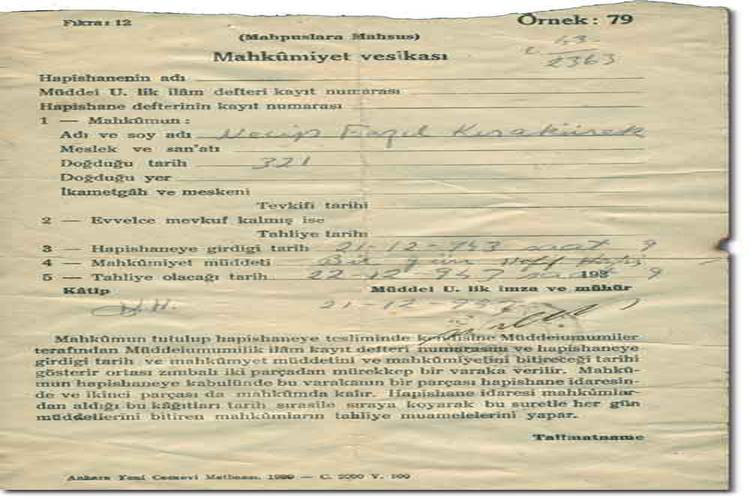 Fıkra: 12
Örnek: 79
(Mahpuslara Mahsus)
43
2363
Mahkûmiyet vesikası
Hapishanenin adı
Müddei U. lik ilâm defteri kayıt numarası
Hapishane defterinin kayıt numarası
1 — Mahkûmun:
Adı ve soy adı Necip Fazıl Kısakürek
Meslek ve san'atı
Doğduğu tarih 321
Doğduğu yer
İkametgâh ve meskeni
Tevkifi tarihi
2 — Evvelce mevkuf kalmış ise
Tahliye tarihi
3 — Hapishaneye girdigi tarih 21-12-943 saat 9
4 — Mahkûmiyet müddeti Bir gün Hafif Hapis
5 — Tahliye olacağı tarih 22-12-947 saat 193 9
Kâtip
Müddei U. lik imza ve mühür
21-12-
Mahkûmun tutulup hapishaneye tesliminde kendisine Müddeiumumiler
terafından Müddeiumumilik ilâm kayıt defteri numarasını ve hapishaneye
girdigi tarih ve mahkûmyet müddetini ve mahkûmiyetini bitireceği tarihi
gösterir ortası zımbalı iki parçadan mürekkep bir varaka verilir. Mahkû-
mun hapishaneye kabulünde bu varakanın bir parçası hapishane idaresin-
de ve ikinci parçası da mahkûmda kalır. Hapishane idaresi mahkûmlar-
dan aldığı bu kâğıtları tarih sırasile sıraya koyarak bu suretle her gün
müddetlerini bitiren mahkûmların tahliye muamelelerini yapar.
Talimatname
Ankara Yeni Cezaevi Matbaası. 1939 — C. 2000 V. 100